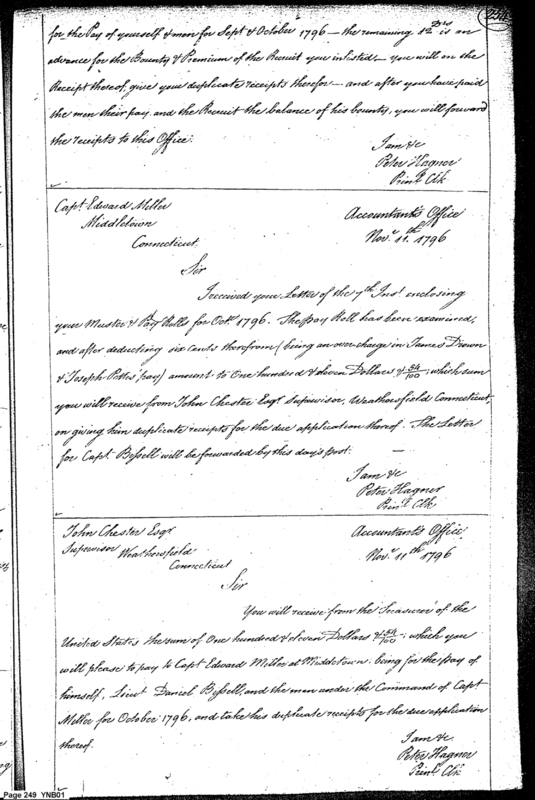 for the Pay of yourself & men for Sept & October 1796 — the remaining 12 Drs is an
advance for the Bounty & Premium of the Recruit you inlisted — You will on the
Receipt thereof, give your duplicate receipts therefor — and after you have paid
the men their pay, and the Recruit the balance of his bounty, you will forward
the receipts to this Office.
I am &c
Peter Hagner
Prinl. Clk
Capt. Edward Miller
Middletown
Connecticut.
Accountant's Office
Novr. 11th. 1796
Sir
I received your Letter of the 7th Inst. enclosing
your Muster & Pay Rolls for Octr. 1796. The pay Roll has been examined,
and after deducting six cents therefrom (being an over charge in James Drown
& Joseph Potts' pay) amount to One hundred & eleven Dollars & 54/100; which sum
you will receive from John Chester Esqr. Supervisor, Weathersfield Connecticut,
on giving him duplicate receipts for the due application thereof. The Letter
for Capt. Bissell will be forwarded by this day's post. —
I am &c
Peter Hagner
Prinl. Clk
John Chester Esqr
Supervisor Weathersfield
Connecticut
Accountant's Office
Novr. 11th 1796
Sir
You will receive from the Treasurer of the
United States the sum of One hundred & eleven Dollars & 54/100; which you
will please to pay to Capt Edward Miller at Middletown: being for the pay of
himself, Lieut Daniel Bissell, and the men under the Command of Capt
Miller for October 1796, and take his duplicate receipts for the due application
thereof.
I am &c.
Peter Hagner
Prinl. Clk
Page 249 YNB01